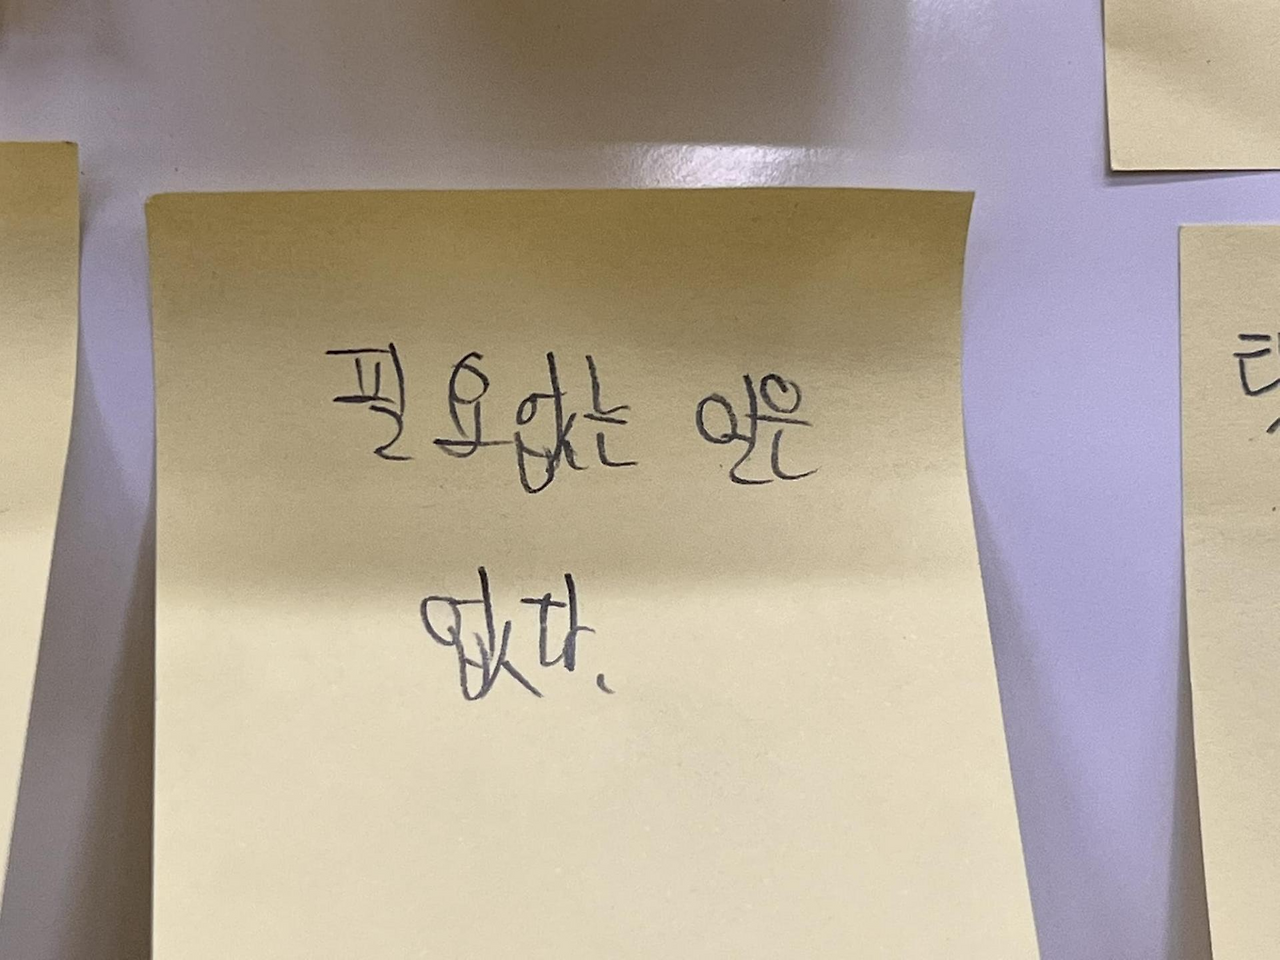 필요없는 일은
없다.